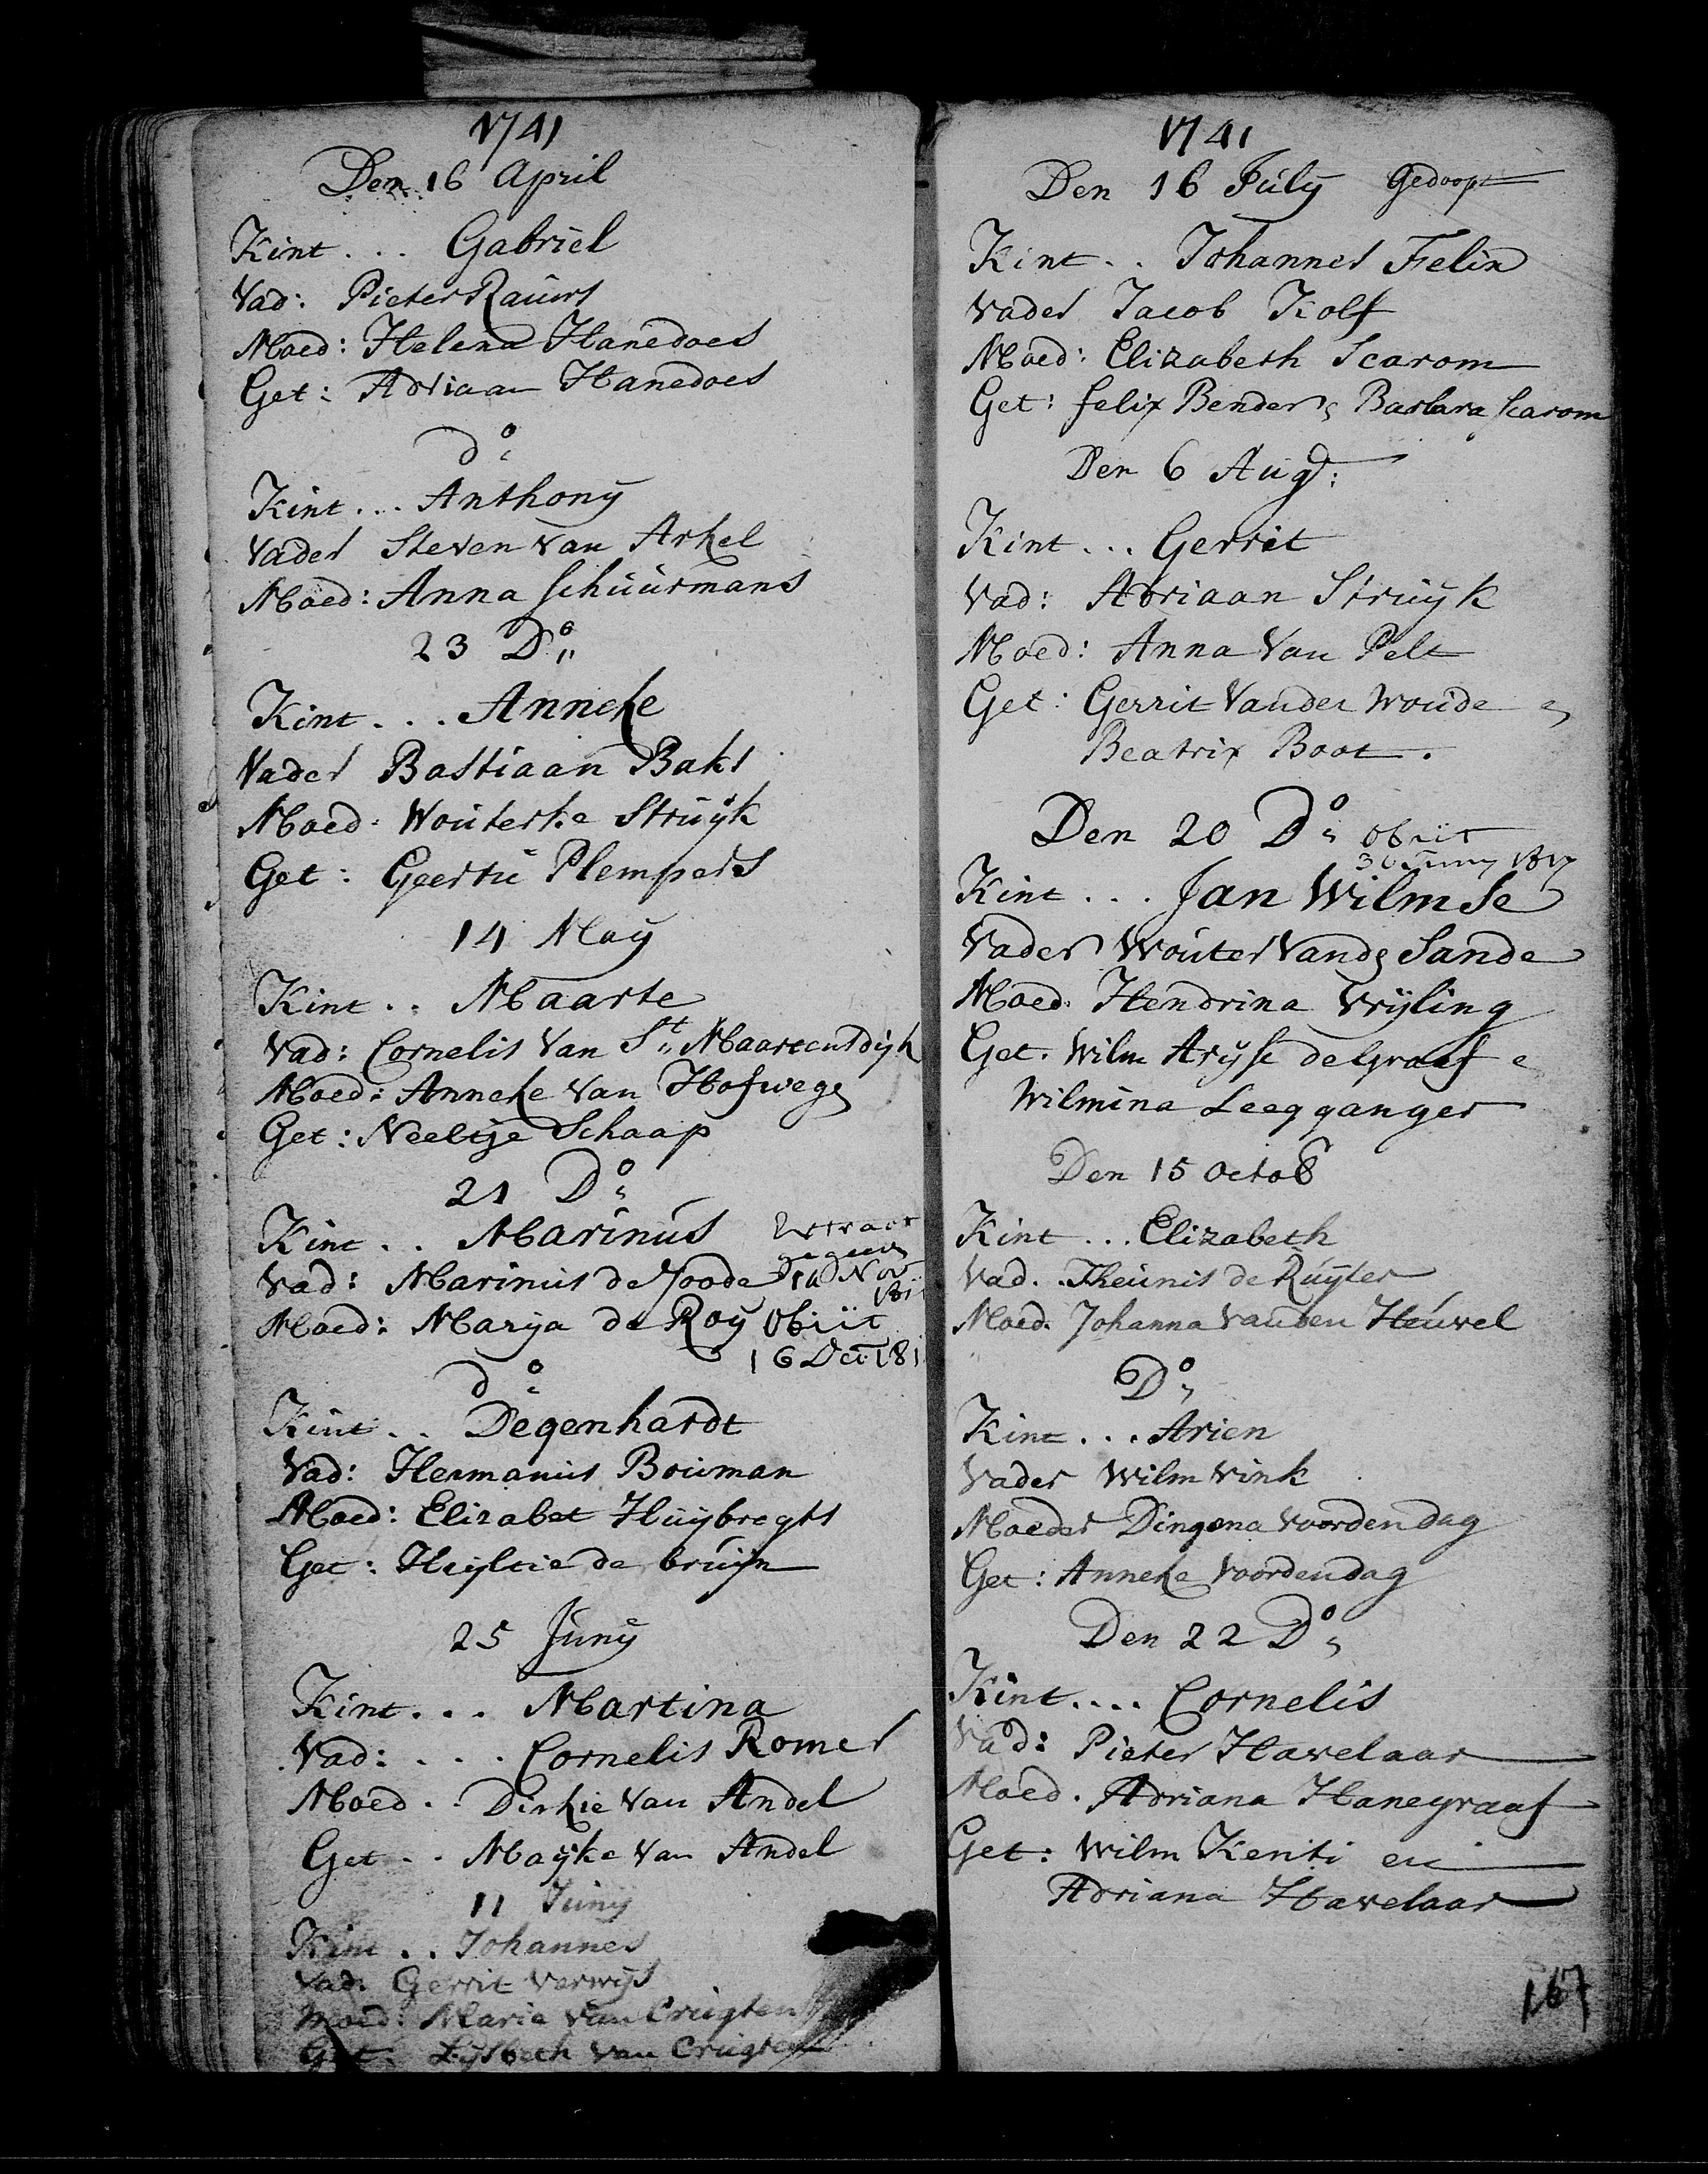 1741
Den 16 April
Kint . . . Gabriel
Vad: Pieter Rauws
Moed: Helena Hanedoes
Get: Adriaan Hanedoes
do
Kint . . . Anthonÿ
Vader Steven van Arkel
Moed: Anna Schuurmans
23 Do
Kint . . . Anneke
Vader Bastiaan Baks
Moed. Wouterke Struÿk
Get: Geertie Plempers
14 Maÿ
Kint . . Maarte
Vad: Cornelis Van St. Maartensdijk
Moed: Anneke van Hofwege
Get: Neeltje Schaap
21 Do
Kint . . Marinus
Extract
gegeven
Vad: Marinus de Joode
10 Nov
181
Moed: Marya de Roy
Obiit
16 Dec 181
do
Kint . . Degenhardt
Vad: Hermanus Bouman
Moed: Elizabet Huÿbregts
Get: Huÿltie de bruÿn
25 Junÿ
Kint . . . Martina
Vad: . . . Cornelis Romer
Moed . . Dirkie van Andel
Get . . Maÿke van Andel
11 Junÿ
Kint . . Johannes
Vad. Gerrit Verwÿs
Moed: Maria van Crugten
Get: Lÿsbeth van Crugten
1741
Den 16 Julÿ Gedoopt
Kint . . Johannes Felix
Vader Jacob Kolf
Moed: Elizabeth Scarom
Get: felix Bender, Barbara Scarom
Den 6 Augt:
Kint . . . Gerrit
Vad: Adriaan Struÿk
Moed: Anna Van Pelt
Get: Gerrit Vander Woude e
Beatrix Boot.
Den 20 Do
Obiit
30 Juny 1817
Kint . . . Jan Wilmse
Vader Wouter Vande Sande
Moed. Hendrina Wrÿling
Get. Wilm Arÿse de Graaf e
Wilmina Leegganger
Den 15 Octob
Kint . . . Elizabeth
Vad. . Theunis de Ruÿter
Moed. Johanna vanden Heuvel
Do
Kint . . . Arien
Vader Wilm Vink
Moeder Dingena Voordendag
Get: Anneke Voordendag
Den 22 Do
Kint . . . . Cornelis
Vad: Pieter Havelaar
Moed. Adriana Hanegraaf
Get: Wilm Kenti en
Adriana Havelaar
167